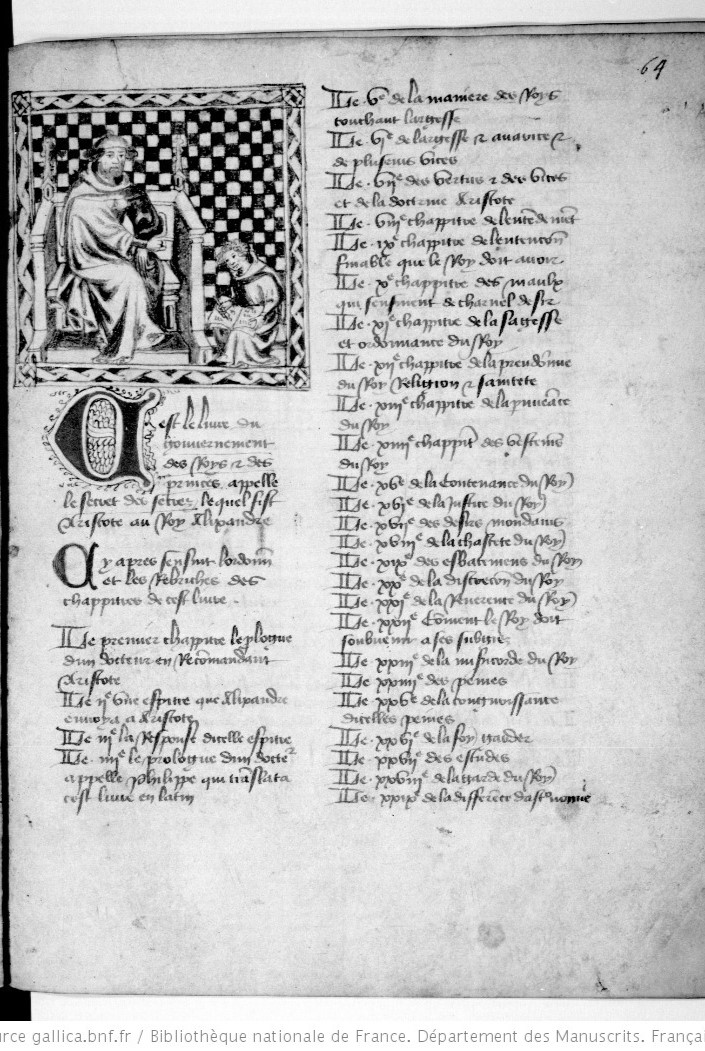 64
Cest le livre du
gouvernement
des Roys et des
princes appelle
le secret des secres lequel fist
Aristote au Roy Alixandre
Cy apres sensuit lordonn
et les Rebriches des
chappitres de cest livre.
Le premier chappitre le plogue
dun docteur en Recomandant
Aristote
Le ii.e vne espitre que Alixandre
envoya a Aristote
Le iii.e la Response dicelle espitre
Le iiii.e le prologue dun docter
appelle Philippe qui translata
cest livre en latin
Le .v.e de la maniere des Roys
touchant largesse
Le .vi.e de largesse et avarice et
de plusieurs vices
Le .vii.e des vertus et des vices
et de la doctrine Aristote
Le .viii.e chappitre de lentendement
Le .ix.e chappitre de lentencion
finable que le Roy doit avoir
Le .x.e chappitre des maulx
qui sensuient de charnel desir
Le .xi.e chappitre de la sagesse
et ordonnance du Roy
Le .xii.e chappitre de la preudomie
du Roy Religion et saintete
Le .xiii.e chappitre de la pourveance
du Roy
Le .xiiii.e chappitre des vestemens
du Roy
Le .xv.e de la Contenance du Roy
Le .xvi.e de la Justice du Roy
Le .xvii.e des desirs mondains
Le .xviii.e de la chastete du Roy
Le .xix.e des esbatemens du Roy
Le .xx.e de la discrecion du Roy
Le .xxi.e de la Reverence du Roy
Le .xxii.e Coment le Roy doit
soubvenir a ses subgiez
Le .xxiii.e de la misericorde du Roy
Le .xxiiii.e des peines
Le .xxv.e de la congnoissance
dicelles peines
Le .xxvi.e de la foy garder
Le .xxvii.e des estudes
Le .xxviii.e de la garde du Roy
Le .xxix.e de la difference dastronomie
urce gallica.bnf.fr / Bibliothèque nationale de France. Département des Manuscrits. Françai